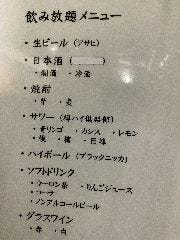 飲み放題メニュー
・生ビール（アサヒ）
・日本酒（　　　）
・燗酒 ・冷酒
・焼酎
・芋 ・麦
・サワー（樽ハイ倶楽部）
・青リンゴ ・カシス ・レモン
・桃 ・梅 ・巨峰
・ハイボール（ブラックニッカ）
・ソフトドリンク
・ウーロン茶 ・りんごジュース
・コーラ
・ノンアルコールビール
・グラスワイン
・赤 ・白